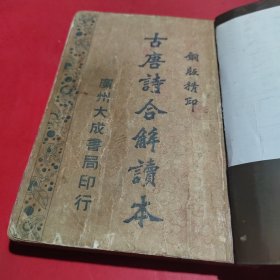 銅版精印
古唐詩合解讀本
廣州大成書局印行